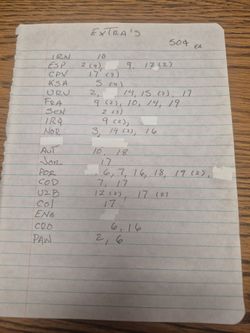 EXTRA'S
50¢ ea
IRN 10
ESP 2(4), 9, 17(2)
CPV 17(3)
KSA 5
URU 2, 14, 15(2), 17
FRA 9(2), 10, 14, 19
SEN 2(3)
IRQ 9(2),
NOR 3, 14(2), 16
AUT 10, 18
JOR 17
POR 6, 7, 16, 18, 19(2),
COD 7, 17
UZB 12(2), 17(2)
COL 17
ENG
CRO 6, 16
PAN 2, 6